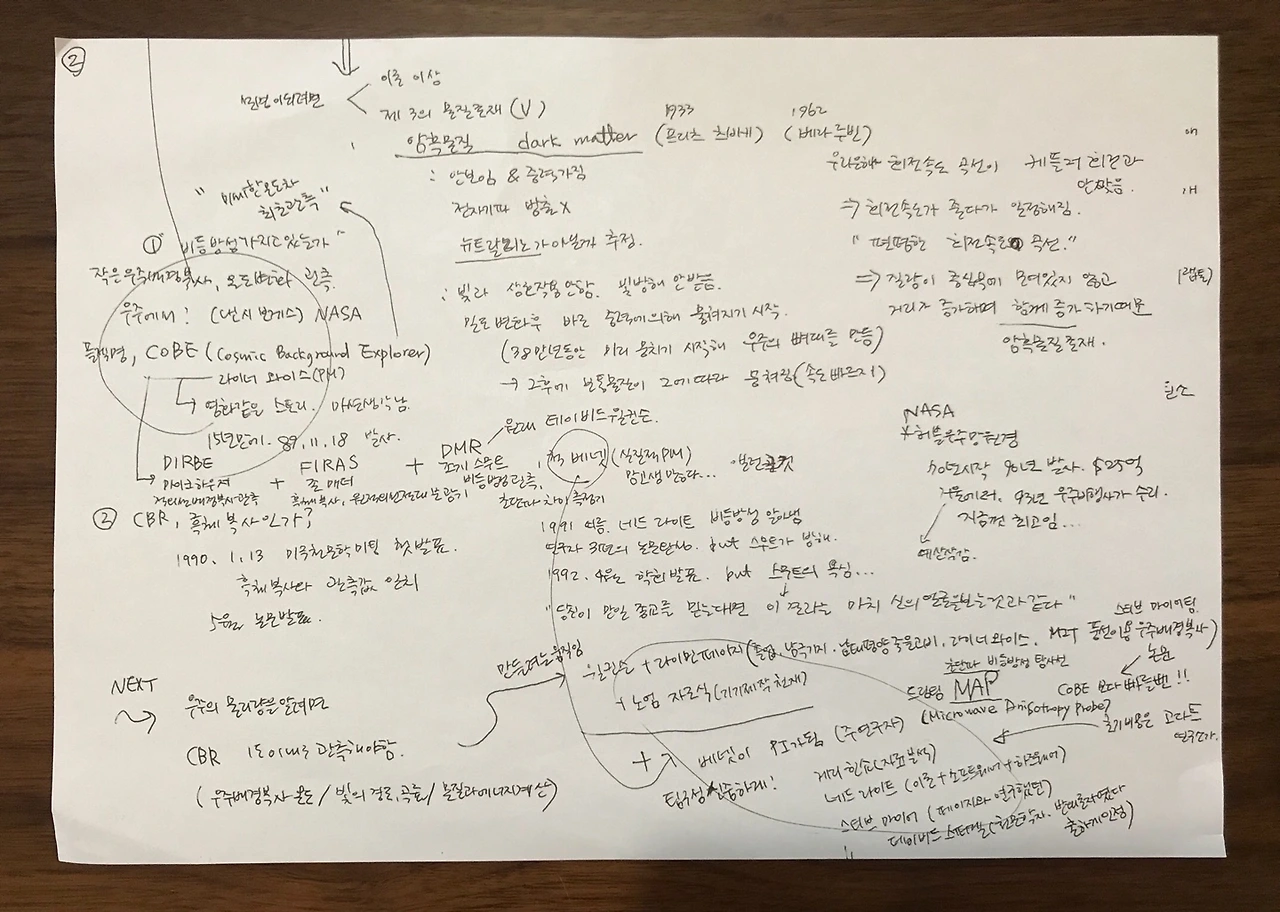 ②
이론 이상
제 3의 물질존재 (V)
암흑물질 dark matter (프리츠 츠비키) (베라 루빈)
1933
1962
: 안보임 & 중력가짐
전자기파 방출 X
뉴트랄리노가 아닐까 추정.
: 빛과 상호작용안함. 빛방해 안받음.
밀도 변화후 바로 중력에의해 뭉쳐지기 시작.
(38만년동안 미리 뭉치기 시작해 우주의 뼈대를 만듬)
→ 그후에 보통물질이 그에따라 뭉쳐짐 (속도 빠르지)
우리은하 회전속도 곡선이 케플러 회전과
안맞음.
⇒ 회전속도가 줄다가 일정해짐.
"편평한 회전속도 곡선."
⇒ 질량이 중심부에 모여있지 않고
거리가 증가하며 함께 증가하기때문
암흑물질 존재.
"미세한 온도차
최초관측"
① "비등방성 가지고 있는가"
작은 우주배경복사, 온도변화 관측.
우주에서! (낸시 보게스) NASA
플젝명, COBE (Cosmic Background Explorer)
라이너 와이스 (PM)
영화같은 스토리. 마션생각남.
15년만에. 89. 11. 18 발사.
DIRBE + FIRAS + DMR
마이크 하우저
존 매더
조지 스무트
원래 데이비드 윌킨슨.
적외선배경복사관측
흑체복사, 원적외선절대분광기
비등방성 관측,
초단파 차이 측정기
척 베넷 (실질적 PM)
맘고생 많았다...
② CBR, 흑체 복사인가?
1990. 1. 13 미국천문학미팅 첫발표.
흑체복사와 관측값 일치
5월, 논문발표.
1991 여름. 네드 라이트 비등방성 알아냄
연구자 3편의 논문완성. but 스무트가 방해.
1992. 4월 학회발표. but 스무트의 욕심...
"당신이 만일 종교를 믿는다면 이 결과는 마치 신의 얼굴을보는것과 같다"
NASA
* 허블우주망원경
70년시작 90년 발사. $25억
거울에러. 93년 우주비행사가 수리.
지금껏 최고임...
예산삭감.
탄소
NEXT
우주의 물리량을 알려면
CBR 1도이내로 관측해야함.
(우주배경복사 온도 / 빛의 경로, 굴곡 / 물질과에너지계산)
만들려는 움직임
윌킨슨 + 라이먼페이지 (졸업, 남극기지, 남태평양죽을고비, 라이너 와이스, MIT 풍선이용 우주배경복사)
+ 노먼 자로식 (기기제작 천재)
스티브 마이어팀.
논문
COBE 보다 빠를뻔!!
초단파 비등방성 탐사선
드림팀 MAP
(Microwave Anisotropy Probe)
초기내용은 고다드
연구소가.
+ 베넷이 PI가됨 (주연구자)
팀구성 신중하게!
게리 힌쇼 (자료분석)
네드 라이트 (이론+소프트웨어+하드웨어)
스티브 마이어 (페이지와 연구했던)
데이비드 스퍼겔 (천문학자. 반대론자였다